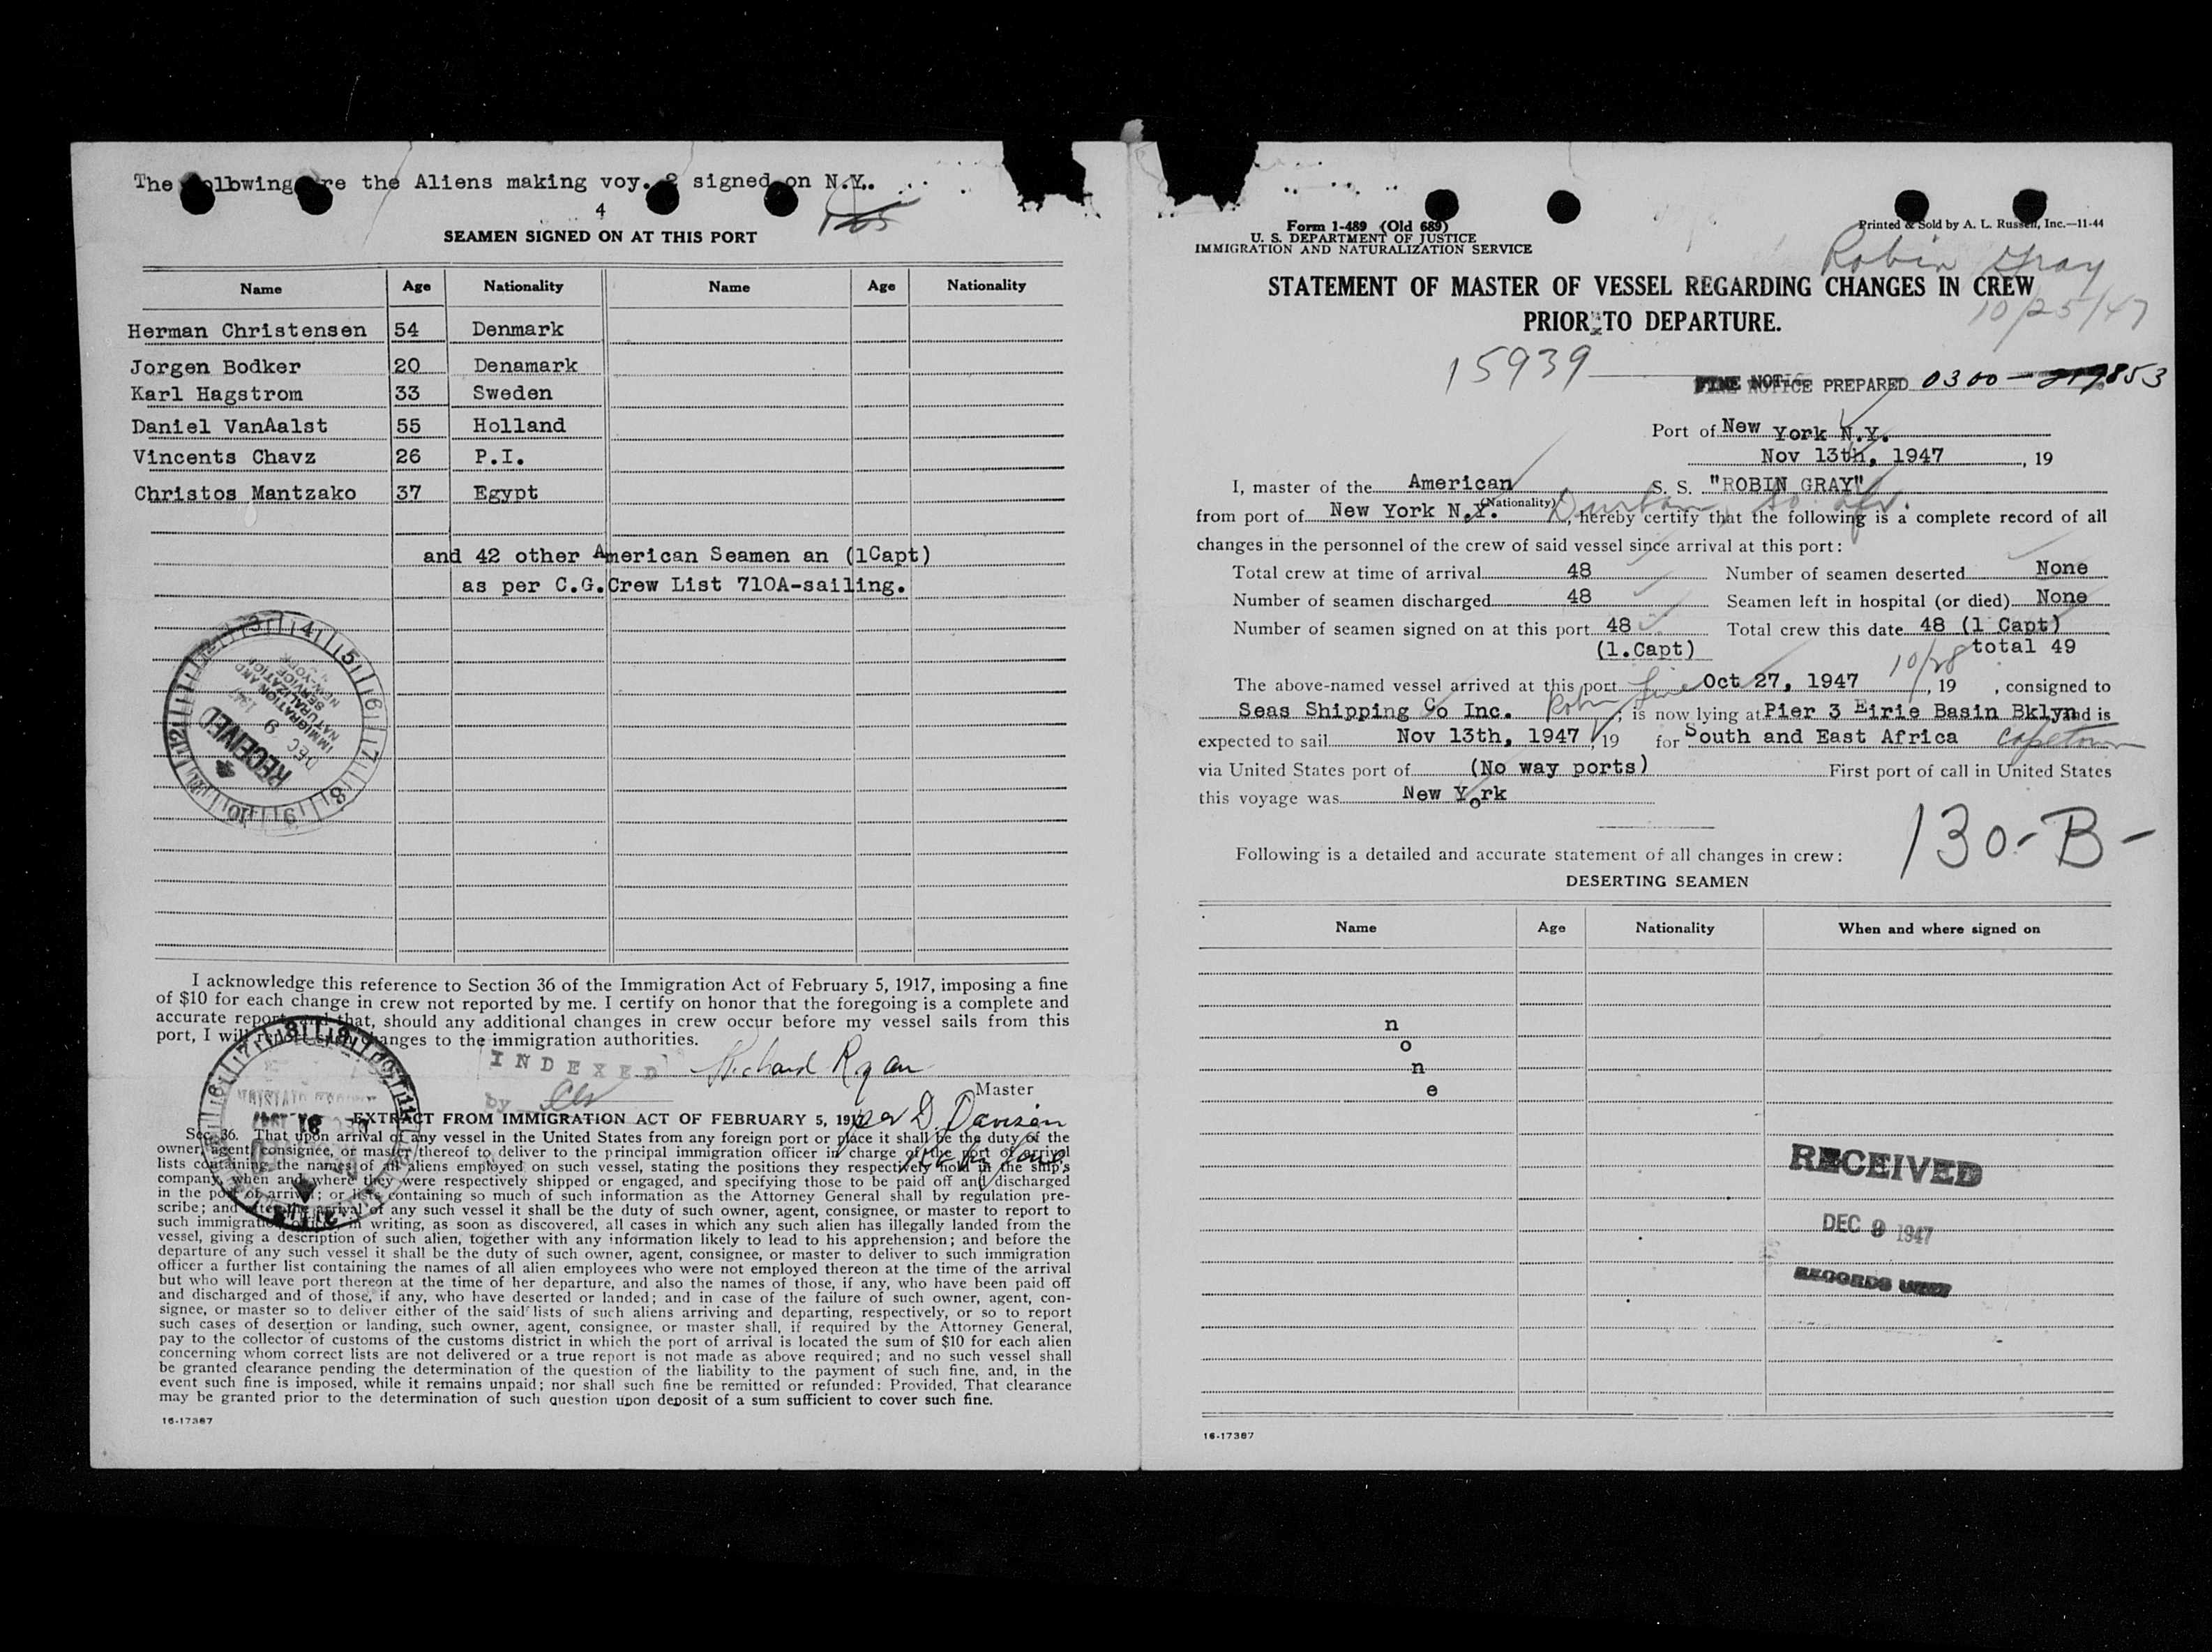 The following are the Aliens making voy. 2 signed on N.Y.
4
SEAMEN SIGNED ON AT THIS PORT
Name Age Nationality Name Age Nationality
Herman Christensen 54 Denmark
Jorgen Bodker 20 Denamark
Karl Hagstrom 33 Sweden
Daniel VanAalst 55 Holland
Vincents Chavz 26 P.I.
Christos Mantzako 37 Egypt
and 42 other American Seamen an (1Capt)
as per C.G.Crew List 710A-sailing.
RECEIVED
DEC 9 1947
IMMIGRATION AND
NATURALIZATION
SERVICE
NEW YORK
I acknowledge this reference to Section 36 of the Immigration Act of February 5, 1917, imposing a fine
of $10 for each change in crew not reported by me. I certify on honor that the foregoing is a complete and
accurate report and that, should any additional changes in crew occur before my vessel sails from this
port, I will report such changes to the immigration authorities.
INDEXED
by
Richard Ryan
Master
per D. Davison
EXTRACT FROM IMMIGRATION ACT OF FEBRUARY 5, 1917
Sec. 36. That upon arrival of any vessel in the United States from any foreign port or place it shall be the duty of the
owner, agent, consignee, or master thereof to deliver to the principal immigration officer in charge of the port of arrival
lists containing the names of all aliens employed on such vessel, stating the positions they respectively hold in the ship's
company, when and where they were respectively shipped or engaged, and specifying those to be paid off and discharged
in the port of arrival; or lists containing so much of such information as the Attorney General shall by regulation pre-
scribe; and after the arrival of any such vessel it shall be the duty of such owner, agent, consignee, or master to report to
such immigration officer, in writing, as soon as discovered, all cases in which any such alien has illegally landed from the
vessel, giving a description of such alien, together with any information likely to lead to his apprehension; and before the
departure of any such vessel it shall be the duty of such owner, agent, consignee, or master to deliver to such immigration
officer a further list containing the names of all alien employees who were not employed thereon at the time of the arrival
but who will leave port thereon at the time of her departure, and also the names of those, if any, who have been paid off
and discharged and of those, if any, who have deserted or landed; and in case of the failure of such owner, agent, con-
signee, or master so to deliver either of the said lists of such aliens arriving and departing, respectively, or so to report
such cases of desertion or landing, such owner, agent, consignee, or master shall, if required by the Attorney General,
pay to the collector of customs of the customs district in which the port of arrival is located the sum of $10 for each alien
concerning whom correct lists are not delivered or a true report is not made as above required; and no such vessel shall
be granted clearance pending the determination of the question of the liability to the payment of such fine, and, in the
event such fine is imposed, while it remains unpaid; nor shall such fine be remitted or refunded: Provided, That clearance
may be granted prior to the determination of such question upon deposit of a sum sufficient to cover such fine.
16-17387
Form 1-489 (Old 689)
U. S. DEPARTMENT OF JUSTICE
IMMIGRATION AND NATURALIZATION SERVICE
Printed & Sold by A. L. Russell, Inc.—11-44
Robin Gray
10/25/47
STATEMENT OF MASTER OF VESSEL REGARDING CHANGES IN CREW
PRIOR TO DEPARTURE.
15939
FINE NOTICE PREPARED 0300-219853
Port of New York N.Y.
Nov 13th, 1947, 19
I, master of the American S. S. "ROBIN GRAY"
(Nationality)
from port of New York N.Y. Durban, So. Afr., hereby certify that the following is a complete record of all
changes in the personnel of the crew of said vessel since arrival at this port:
Total crew at time of arrival 48 Number of seamen deserted None
Number of seamen discharged 48 Seamen left in hospital (or died) None
Number of seamen signed on at this port 48 Total crew this date 48 (1 Capt)
(1.Capt) total 49
10/28
The above-named vessel arrived at this port Oct 27, 1947, 19 , consigned to
Seas Shipping Co Inc. Robin Line, is now lying at Pier 3 Eirie Basin Bklyn and is
expected to sail Nov 13th, 1947, 19 for South and East Africa Capetown
via United States port of (No way ports) First port of call in United States
this voyage was New York
130-B-
Following is a detailed and accurate statement of all changes in crew:
DESERTING SEAMEN
Name Age Nationality When and where signed on
n
o
n
e
RECEIVED
DEC 9 1947
RECORDS UNIT
16-17387